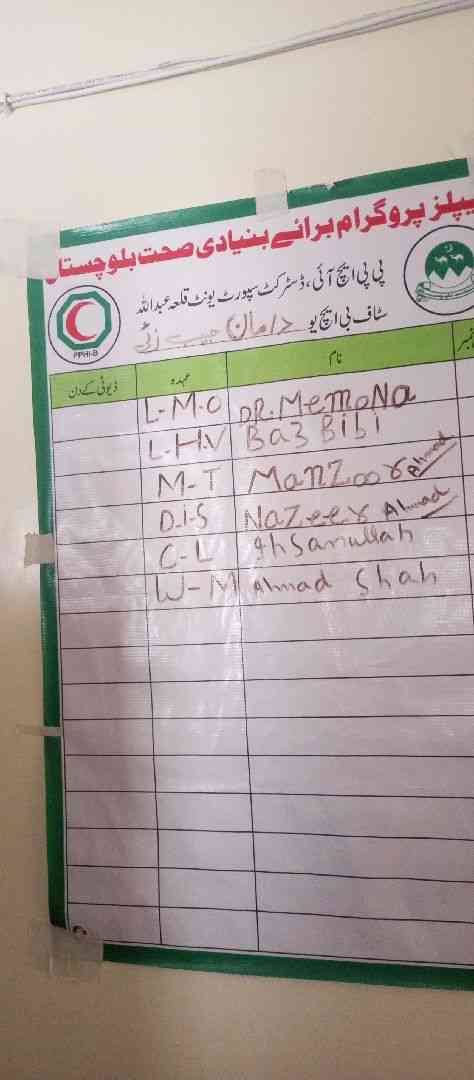 پیپلز پروگرام برائے بنیادی صحت بلوچستان
پی پی ایچ آئی، ڈسٹرکٹ سپورٹ یونٹ قلعہ عبداللہ
سٹاف بی ایچ یو حبیب زئی
PPHI-B
نمبر نام عہدہ ڈیوٹی کے دن
L-M-O DR. MemoNa
L-H-V Baz BiBi
M-T Manzoor Ahmad
D-I-S Nazeer Ahmad
C-L Ihsanullah
W-M Ahmad Shah